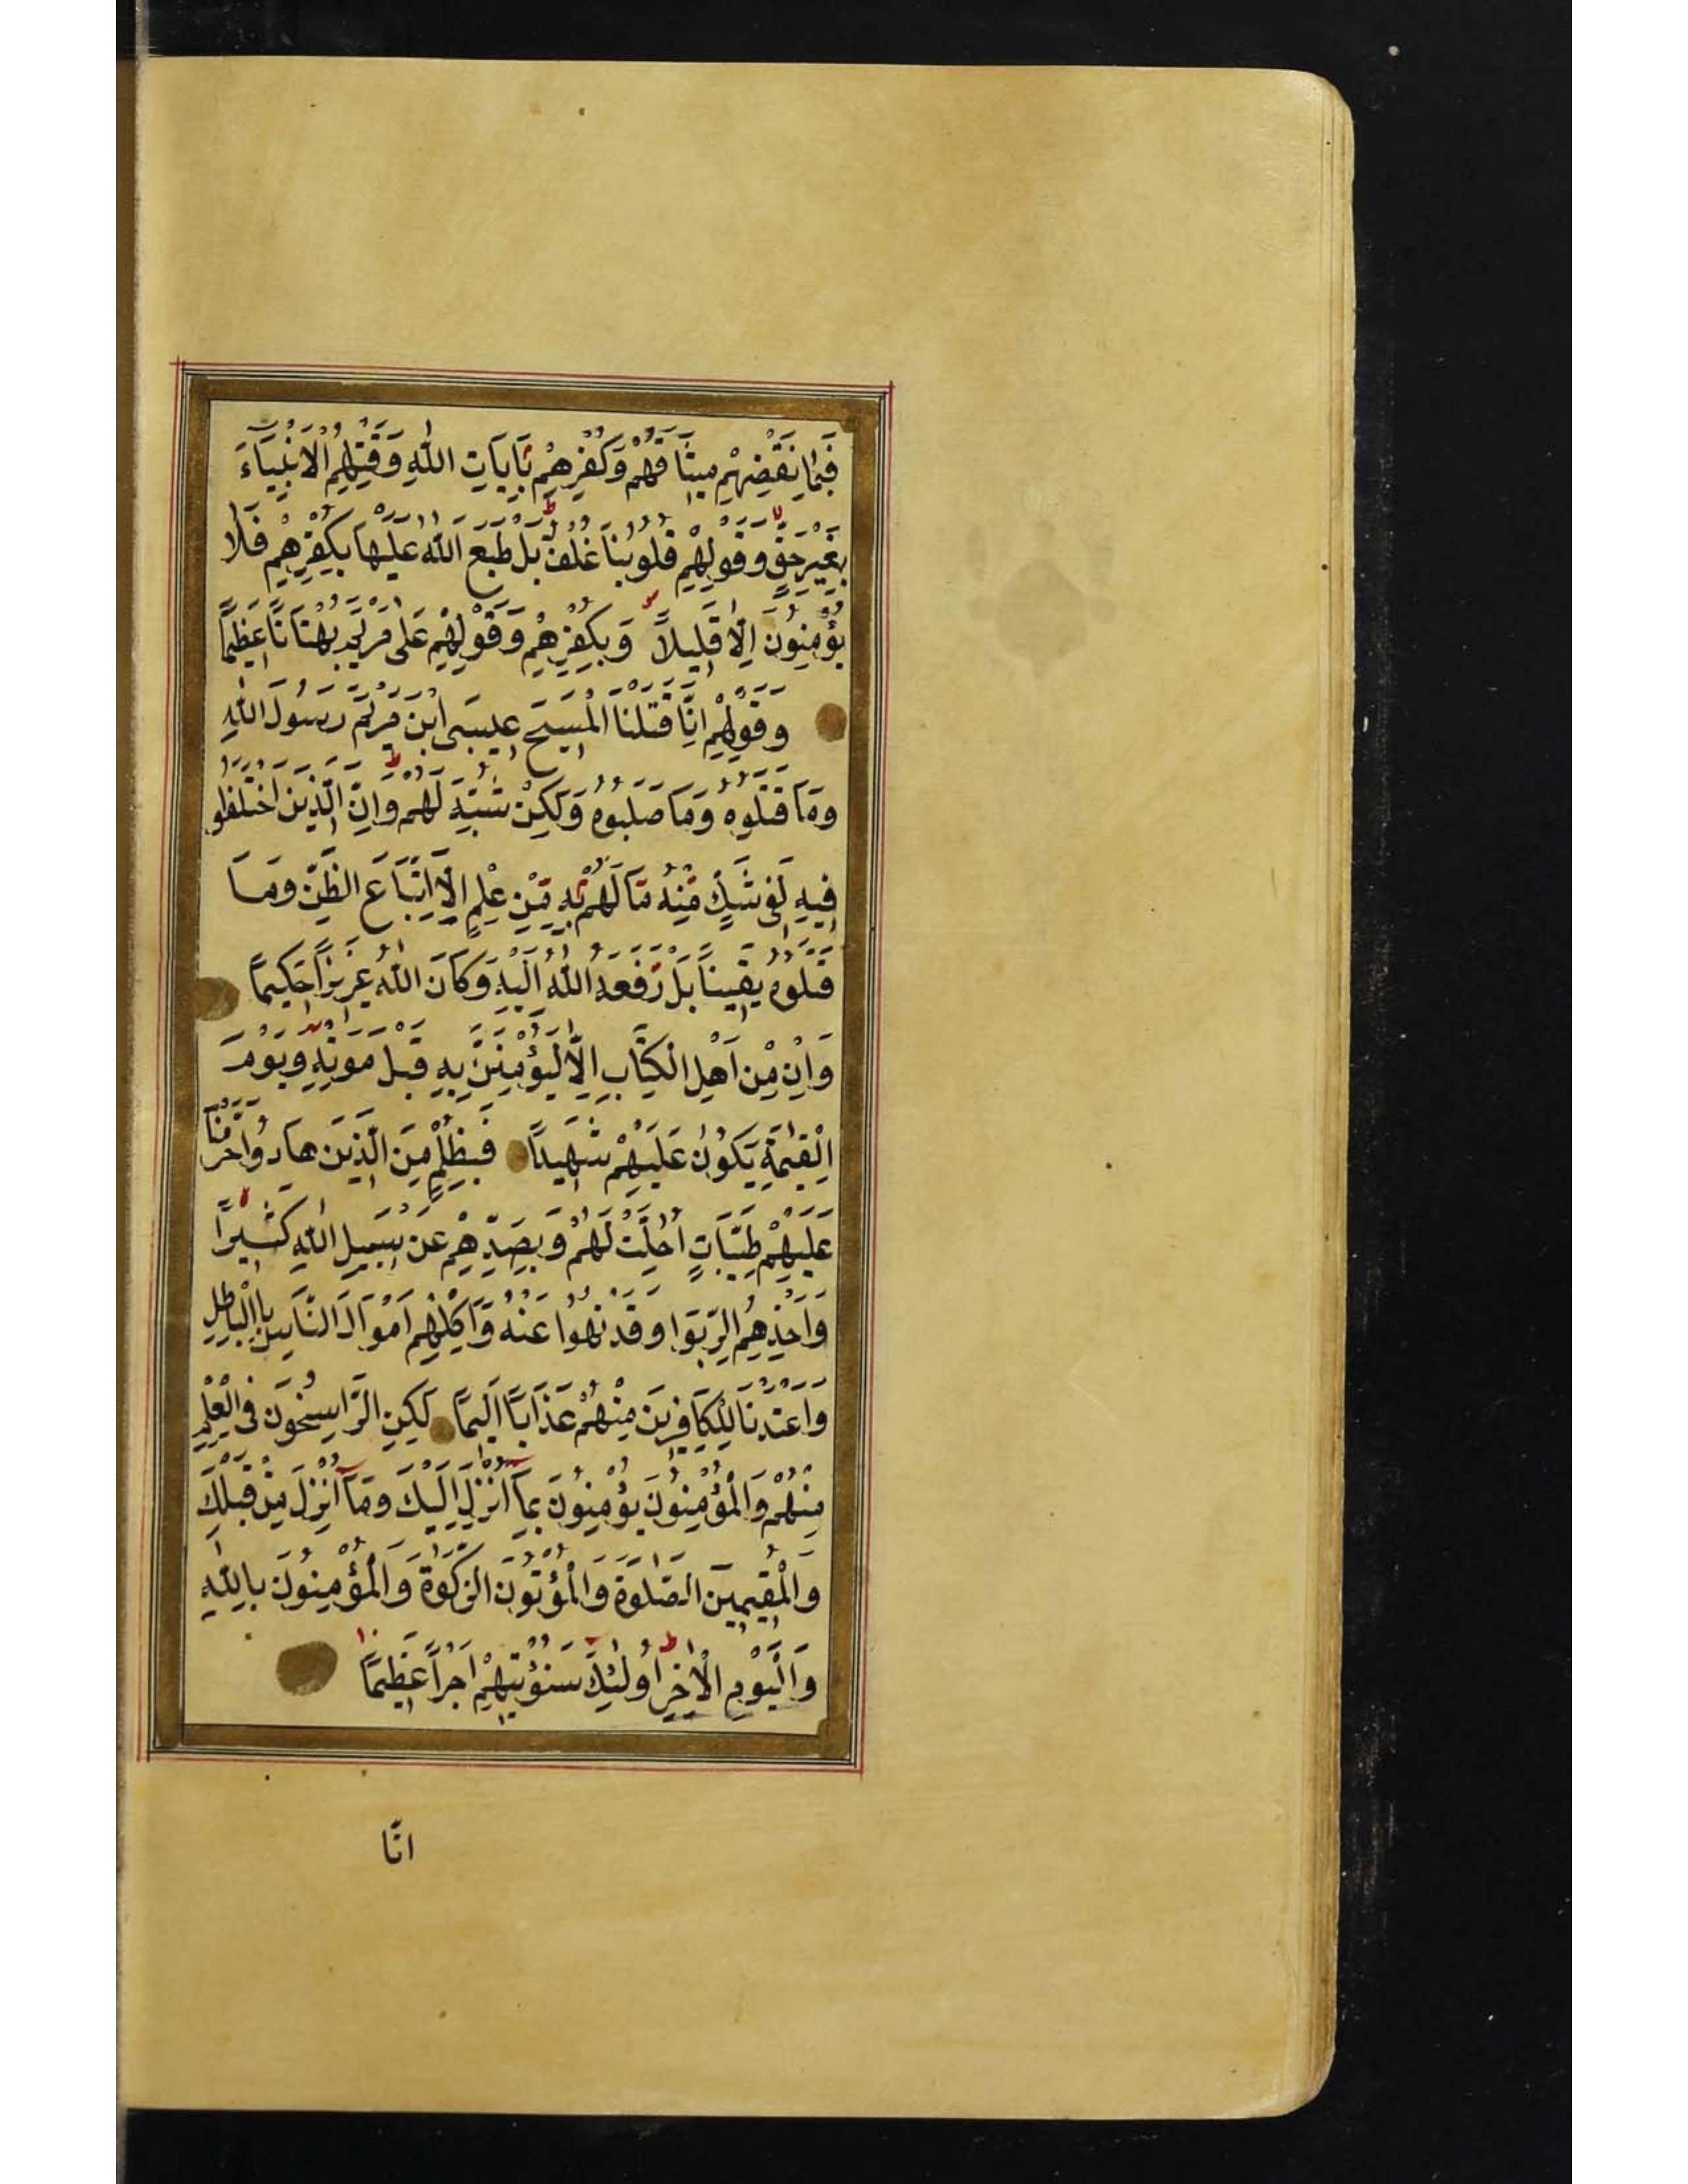 فَبِمَا نَقْضِهِمْ مِيثَاقَهُمْ وَكُفْرِهِمْ بِآيَاتِ اللّٰهِ وَقَتْلِهِمُ الْاَنْبِيَآءَ
بِغَيْرِ حَقٍّ وَقَوْلِهِمْ قُلُوبُنَا غُلْفٌ بَلْ طَبَعَ اللّٰهُ عَلَيْهَا بِكُفْرِهِمْ فَلَا
يُؤْمِنُونَ اِلَّا قَلِيلاً وَبِكُفْرِهِمْ وَقَوْلِهِمْ عَلٰى مَرْيَمَ بُهْتَانًا عَظِيمًا
وَقَوْلِهِمْ اِنَّا قَتَلْنَا الْمَسِيحَ عِيسَى ابْنَ مَرْيَمَ رَسُولَ اللّٰهِ
وَمَا قَتَلُوهُ وَمَا صَلَبُوهُ وَلَكِنْ شُبِّهَ لَهُمْ وَاِنَّ الَّذِينَ اخْتَلَفُوا
فِيهِ لَفِي شَكٍّ مِنْهُ مَا لَهُمْ بِهِ مِنْ عِلْمٍ اِلَّا اتِّبَاعَ الظَّنِّ وَمَا
قَتَلُوهُ يَقِينًا بَلْ رَفَعَهُ اللّٰهُ اِلَيْهِ وَكَانَ اللّٰهُ عَزِيزًا حَكِيمًا
وَاِنْ مِنْ اَهْلِ الْكِتَابِ اِلَّا لَيُؤْمِنَنَّ بِهِ قَبْلَ مَوْتِهِ وَيَوْمَ
الْقِيٰمَةِ يَكُونُ عَلَيْهِمْ شَهِيدًا فَبِظُلْمٍ مِنَ الَّذِينَ هَادُوا حَرَّمْنَا
عَلَيْهِمْ طَيِّبَاتٍ اُحِلَّتْ لَهُمْ وَبِصَدِّهِمْ عَنْ سَبِيلِ اللّٰهِ كَثِيرًا
وَاَخْذِهِمُ الرِّبَوا وَقَدْ نُهُوا عَنْهُ وَاَكْلِهِمْ اَمْوَالَ النَّاسِ بِالْبَاطِلِ
وَاَعْتَدْنَا لِلْكَافِرِينَ مِنْهُمْ عَذَابًا اَلِيمًا لَكِنِ الرَّاسِخُونَ فِي الْعِلْمِ
مِنْهُمْ وَالْمُؤْمِنُونَ يُؤْمِنُونَ بِمَآ اُنْزِلَ اِلَيْكَ وَمَآ اُنْزِلَ مِنْ قَبْلِكَ
وَالْمُقِيمِينَ الصَّلٰوةَ وَالْمُؤْتُونَ الزَّكٰوةَ وَالْمُؤْمِنُونَ بِاللّٰهِ
وَالْيَوْمِ الْاٰخِرِ اُولٰئِكَ سَنُؤْتِيهِمْ اَجْرًا عَظِيمًا
انّا